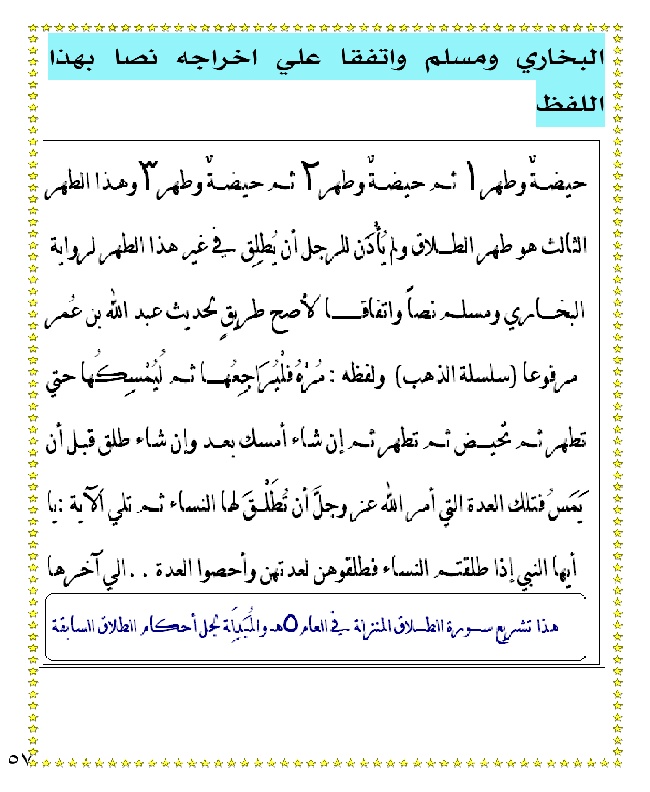 البخاري ومسلم واتفقا علي اخراجه نصا بهذا
اللفظ
حيضةٌ وطهر١ ثم حيضةٌ وطهر٢ ثم حيضةٌ وطهر٣ وهذا الطهر
الثالث هو طهر الطلاق ولم يُأْذَن للرجل أن يُطلِق في غير هذا الطهر لرواية
البخاري ومسلم نصاً واتفاقا لأصح طريقٍ لحديث عبد الله بن عُمر
مرفوعا (سلسلة الذهب) ولفظه : مُرْهُ فلْيُراجِعُها ثم لْيُمْسِكُها حتي
تطهر ثم تحيض ثم تطهر ثم إن شاء أمسك بعد وإن شاء طلق قبل أن
يَمَسُ فتلك العدة التي أمر الله عز وجلَّ أن تُطَلَّقَ لها النساء ثم تلي الآية :يا
أيها النبي إذا طلقتم النساء فطلقوهن لعدتهن وأحصوا العدة . . الي آخرها
هذا تشريع سورة الطلاق المنزلة في العام ٥هـ والمُبَدِلَة لجل أحكام الطلاق السابقة
٥٧